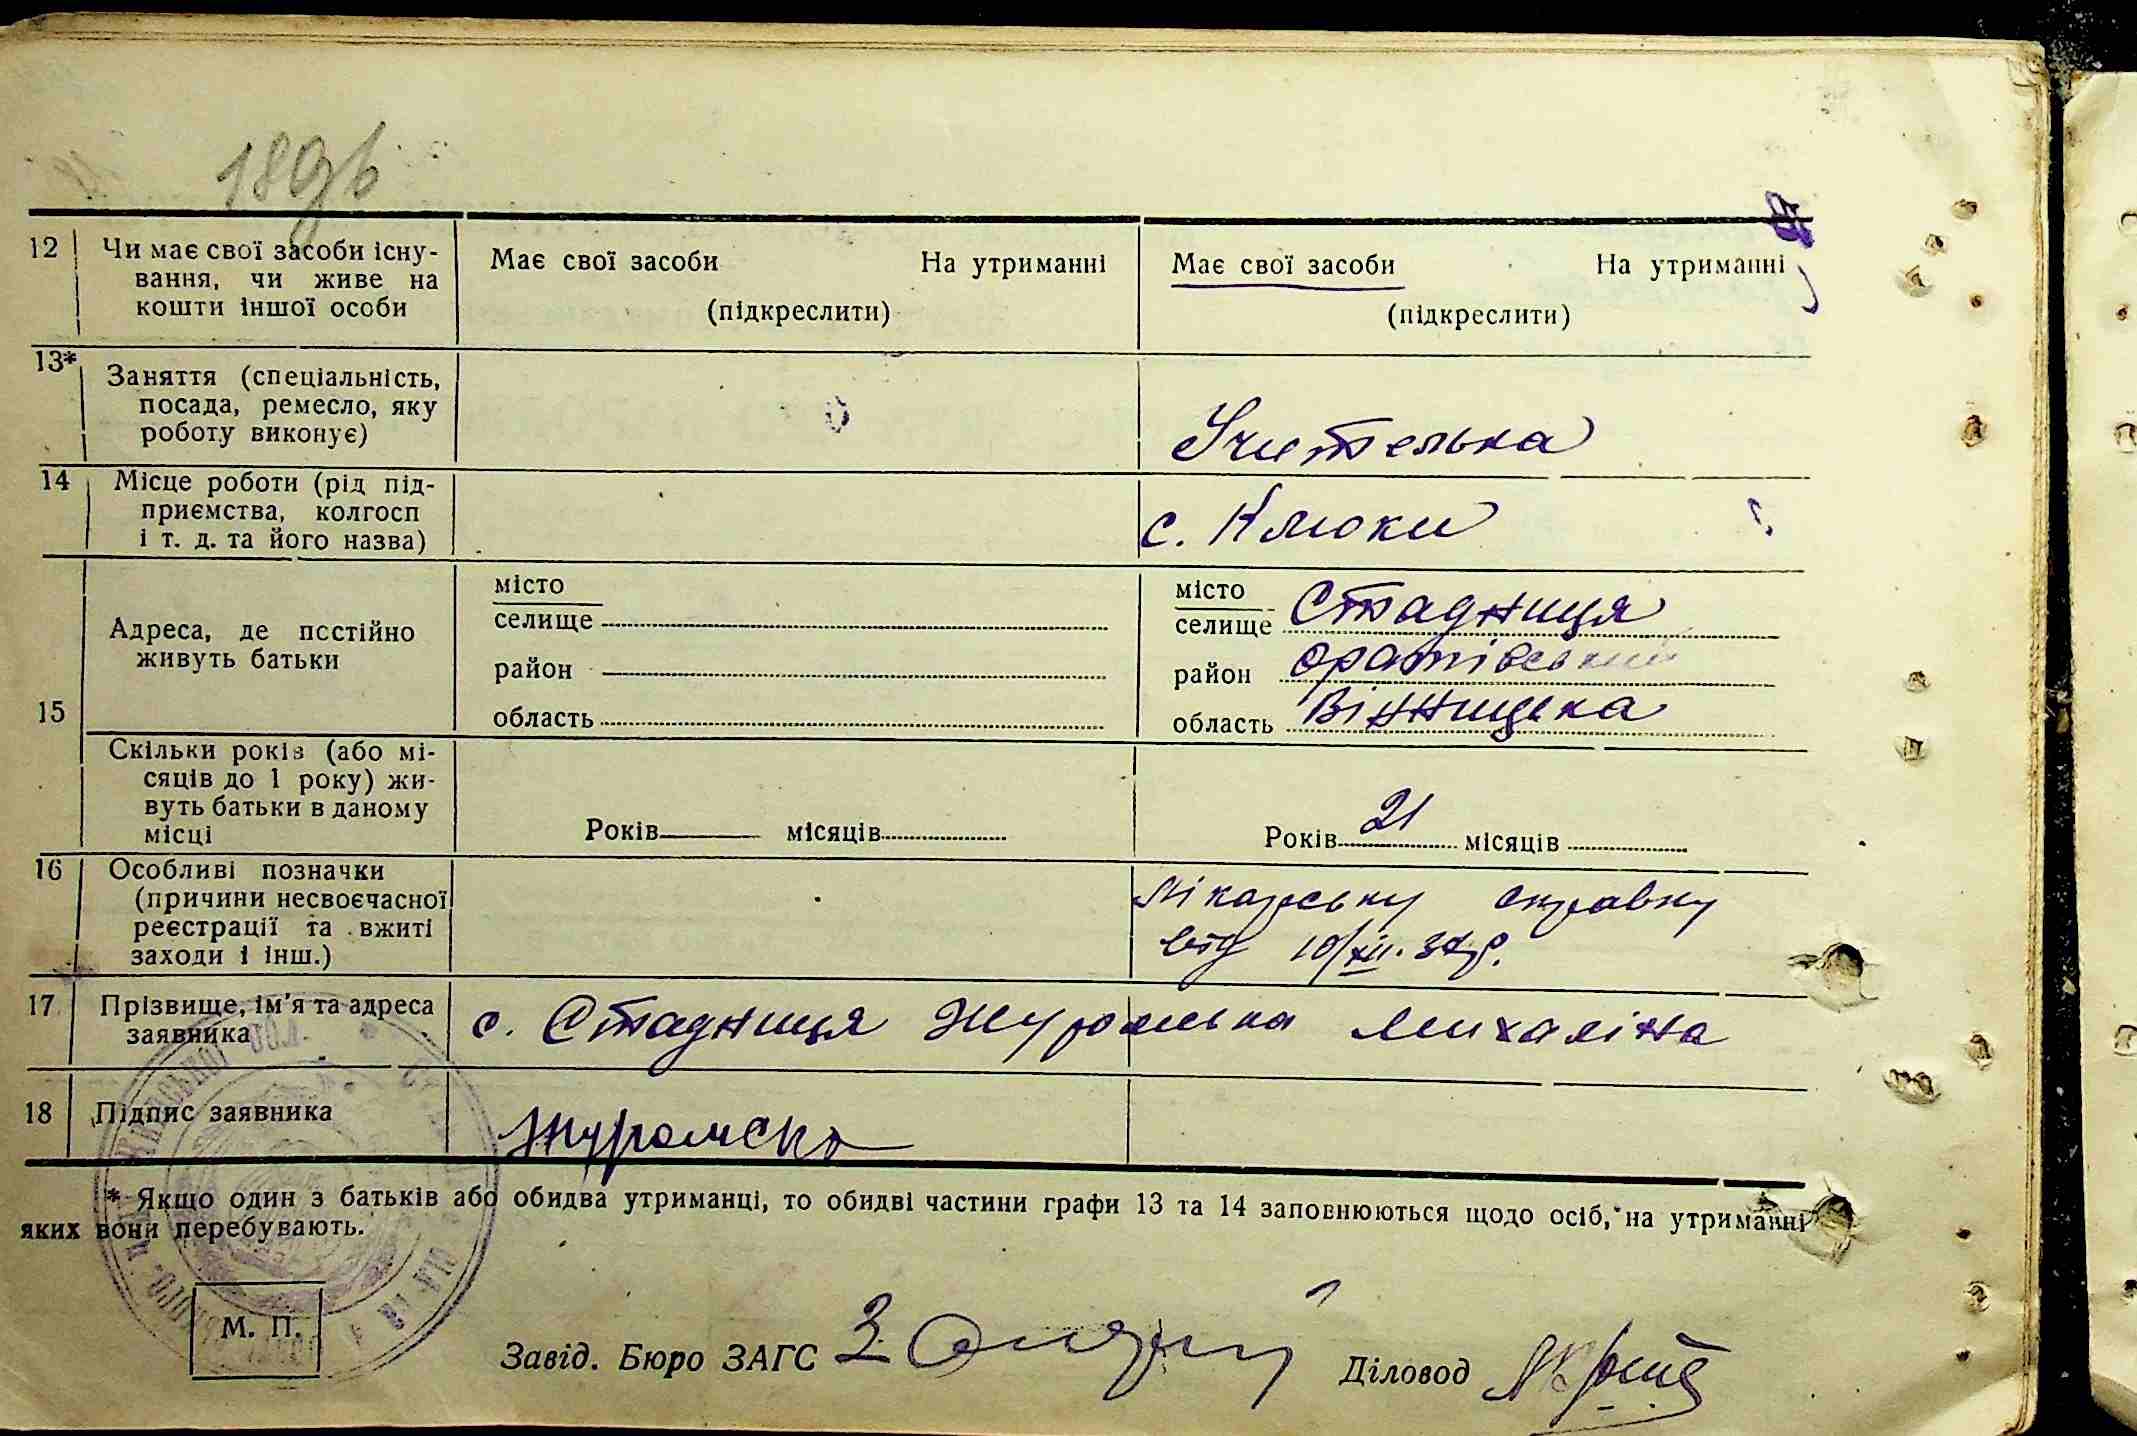 12 Чи має свої засоби існу-
вання, чи живе на
кошти іншої особи
Має свої засоби На утриманні
(підкреслити)
Має свої засоби На утриманні
(підкреслити)
13* Заняття (спеціальність,
посада, ремесло, яку
роботу виконує)
Учителька
14 Місце роботи (рід під-
приємства, колгосп
і т. д. та його назва)
с. Клюки
15
Адреса, де постійно
живуть батьки
місто
селище
район
область
місто
селище Стадниця
район Оратівський
область Вінницька
Скільки років (або мі-
сяців до 1 року) жи-
вуть батьки в даному
місці
Років місяців
Років 21 місяців
16 Особливі позначки
(причини несвоєчасної
реєстрації та вжиті
заходи і інш.)
Лікарську справку
від 10/XII.37р.
17 Прізвище, ім'я та адреса
заявника
с. Стадниця Журомська Михаліна
18 Підпис заявника
Журомска
* Якщо один з батьків або обидва утриманці, то обидві частини графи 13 та 14 заповнюються щодо осіб, на утриманні
яких вони перебувають.
М. П.
Завід. Бюро ЗАГС
Діловод